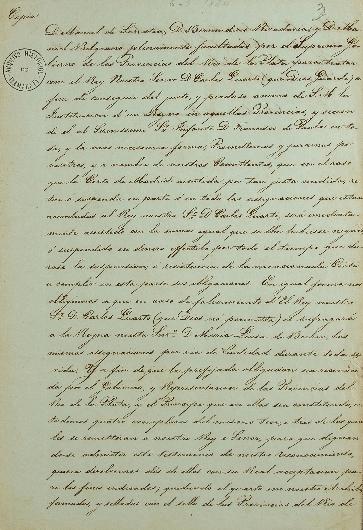 Copia
3
D. Manuel de Sarratea, D. Bernardino Rivadavia, y D. Ma-
nuel Belgrano plenamente facultados por el Supremo Go-
bierno de las Provincias del Rio de la Plata para tratar
con el Rey Nuestro Señor D. Carlos Cuarto (que Dios Guarde) a
fin de conseguir del justo, y piadoso animo de S. M. la
institucion de un Reyno en aquellas Provincias, y cesion
de el al Serenisimo Sr. Infante D. Francisco de Paula en to-
da, y la mas necesaria forma, Prometemos y juramos por
nosotros, y a nombre de nuestros Comitentes, que en el caso
que la Corte de Madrid resentida por tan justa medida, re-
tire o suspenda en parte ó en todo las asignaciones que estan
acordadas al Rey nuestro Sr. D. Carlos Cuarto, sera inmediata-
mente asistido con la suma igual que se le hubiese negado
ó suspendido en dinero efectivo por todo el tiempo que du-
rase la suspension, ó resistencia de la mencionada Corte
a cumplir en esta parte sus obligaciones. En igual forma nos
obligamos a que en caso de fallecimiento del Rey nuestro
Sr. D. Carlos Cuarto (que Dios no permita) se sufragará
a la Reyna nuestra Sra. D. Maria Luisa de Borbon, las
mismas asignaciones por via de viudedad durante toda su
vida. Y a fin de que la prefijada obligacion sea reconoci-
da por el Gobierno, y Representacion de las Provincias del
Rio de la Plata, y el Principe que en ellas sea constituido, es-
tendemos quatro exemplares del mismo tenor, a tres de los qua-
les se remitiran a nuestro Rey y Señor, para que dignan-
dose admitir este testimonio de nuestro reconocimiento,
quiera devolvernos dos de ellos con su Real aceptacion pa-
ra los fines indicados; quedando el quarto en nuestro Archivo
firmados, y sellados con el sello de las Provincias del Rio de